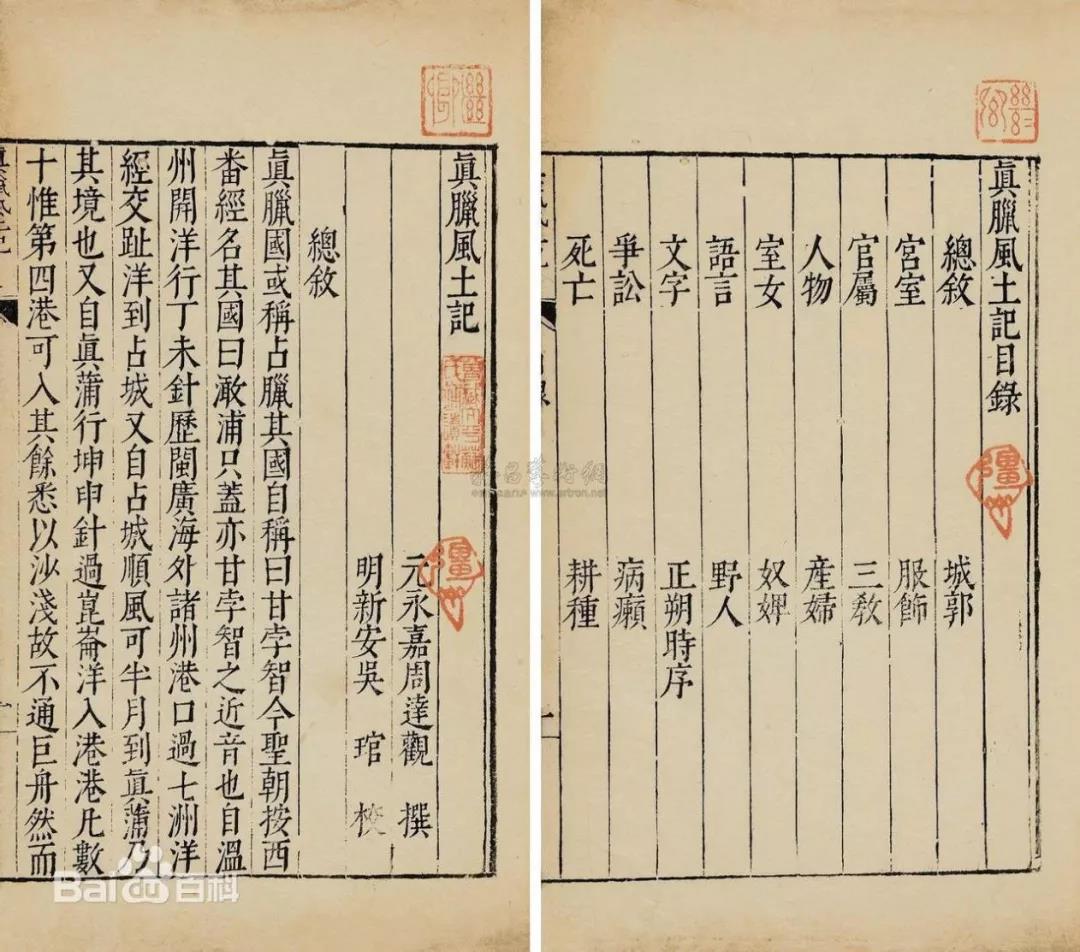 眞臘風土記目錄
總敘 城郭
宮室 服飾
官屬 三敎
人物 產婦
室女 奴婢
語言 野人
文字 正朔時序
爭訟 病癩
死亡 耕種
眞臘風土記
元永嘉周達觀 撰
明新安吳 琯 校
總敘
眞臘國或稱占臘其國自稱曰甘孛智今聖朝按西
番經名其國曰澉浦只蓋亦甘孛智之近音也自溫
州開洋行丁未針歷閩廣海外諸州港口過七洲洋
經交趾洋到占城又自占城順風可半月到眞蒲乃
其境也又自眞蒲行坤申針過崑崙洋入港港凡數
十惟第四港可入其餘悉以沙淺故不通巨舟然而
Bai 百科
www.artron.net